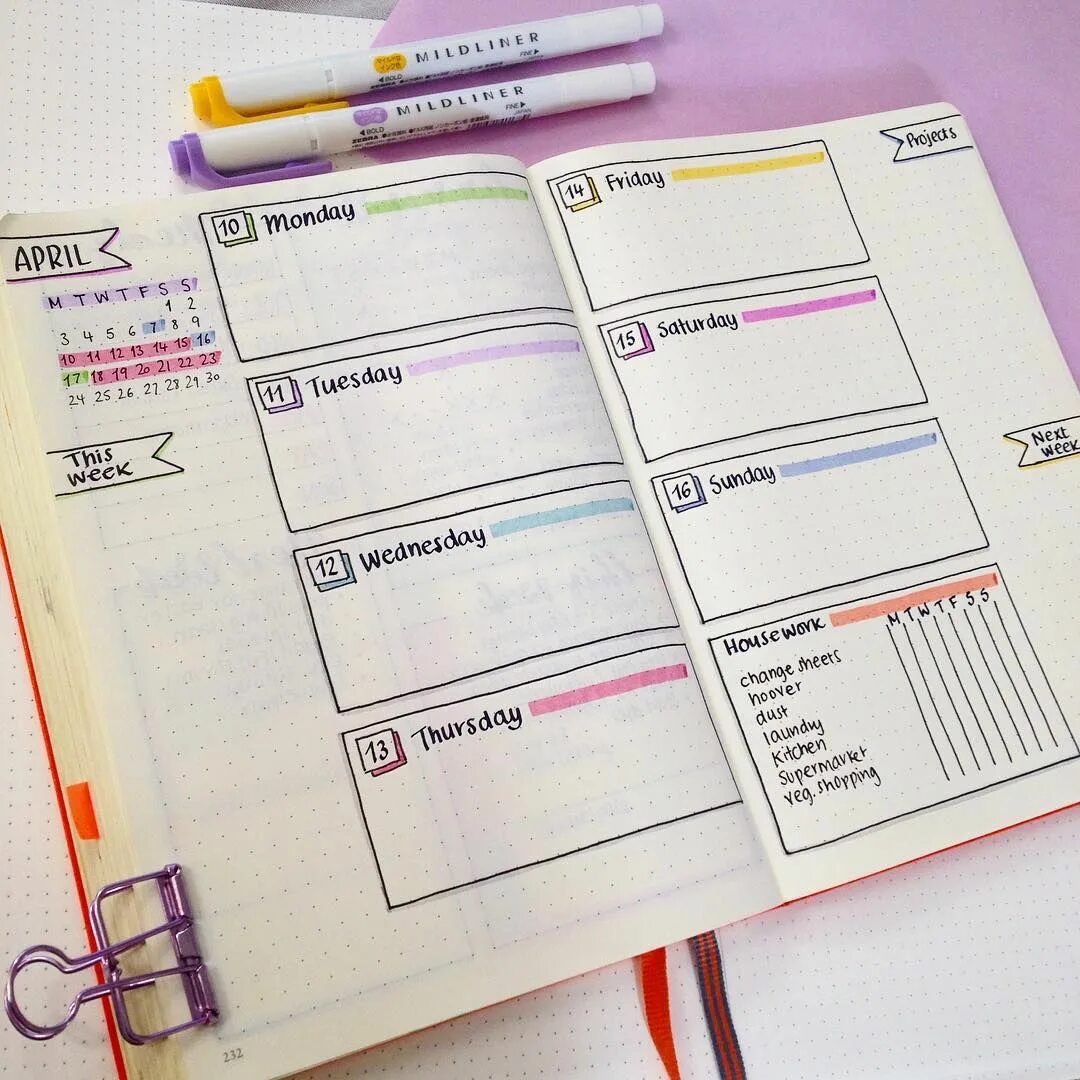 MILDLINER
FINE▶
◀BOLD
MILDLINER
FINE▶
JAPAN
◀BOLD
ZEBRA
APRIL
M T W T F S S
1 2
3 4 5 6 7 8 9
10 11 12 13 14 15 16
17 18 19 20 21 22 23
24 25 26 27 28 29 30
This
week
10 Monday
11 Tuesday
12 Wednesday
13 Thursday
232
14 Friday
15 Saturday
16 Sunday
Housework
M T W T F S S
change sheets
hoover
dust
laundry
Kitchen
supermarket
veg. shopping
Projects
Next
week